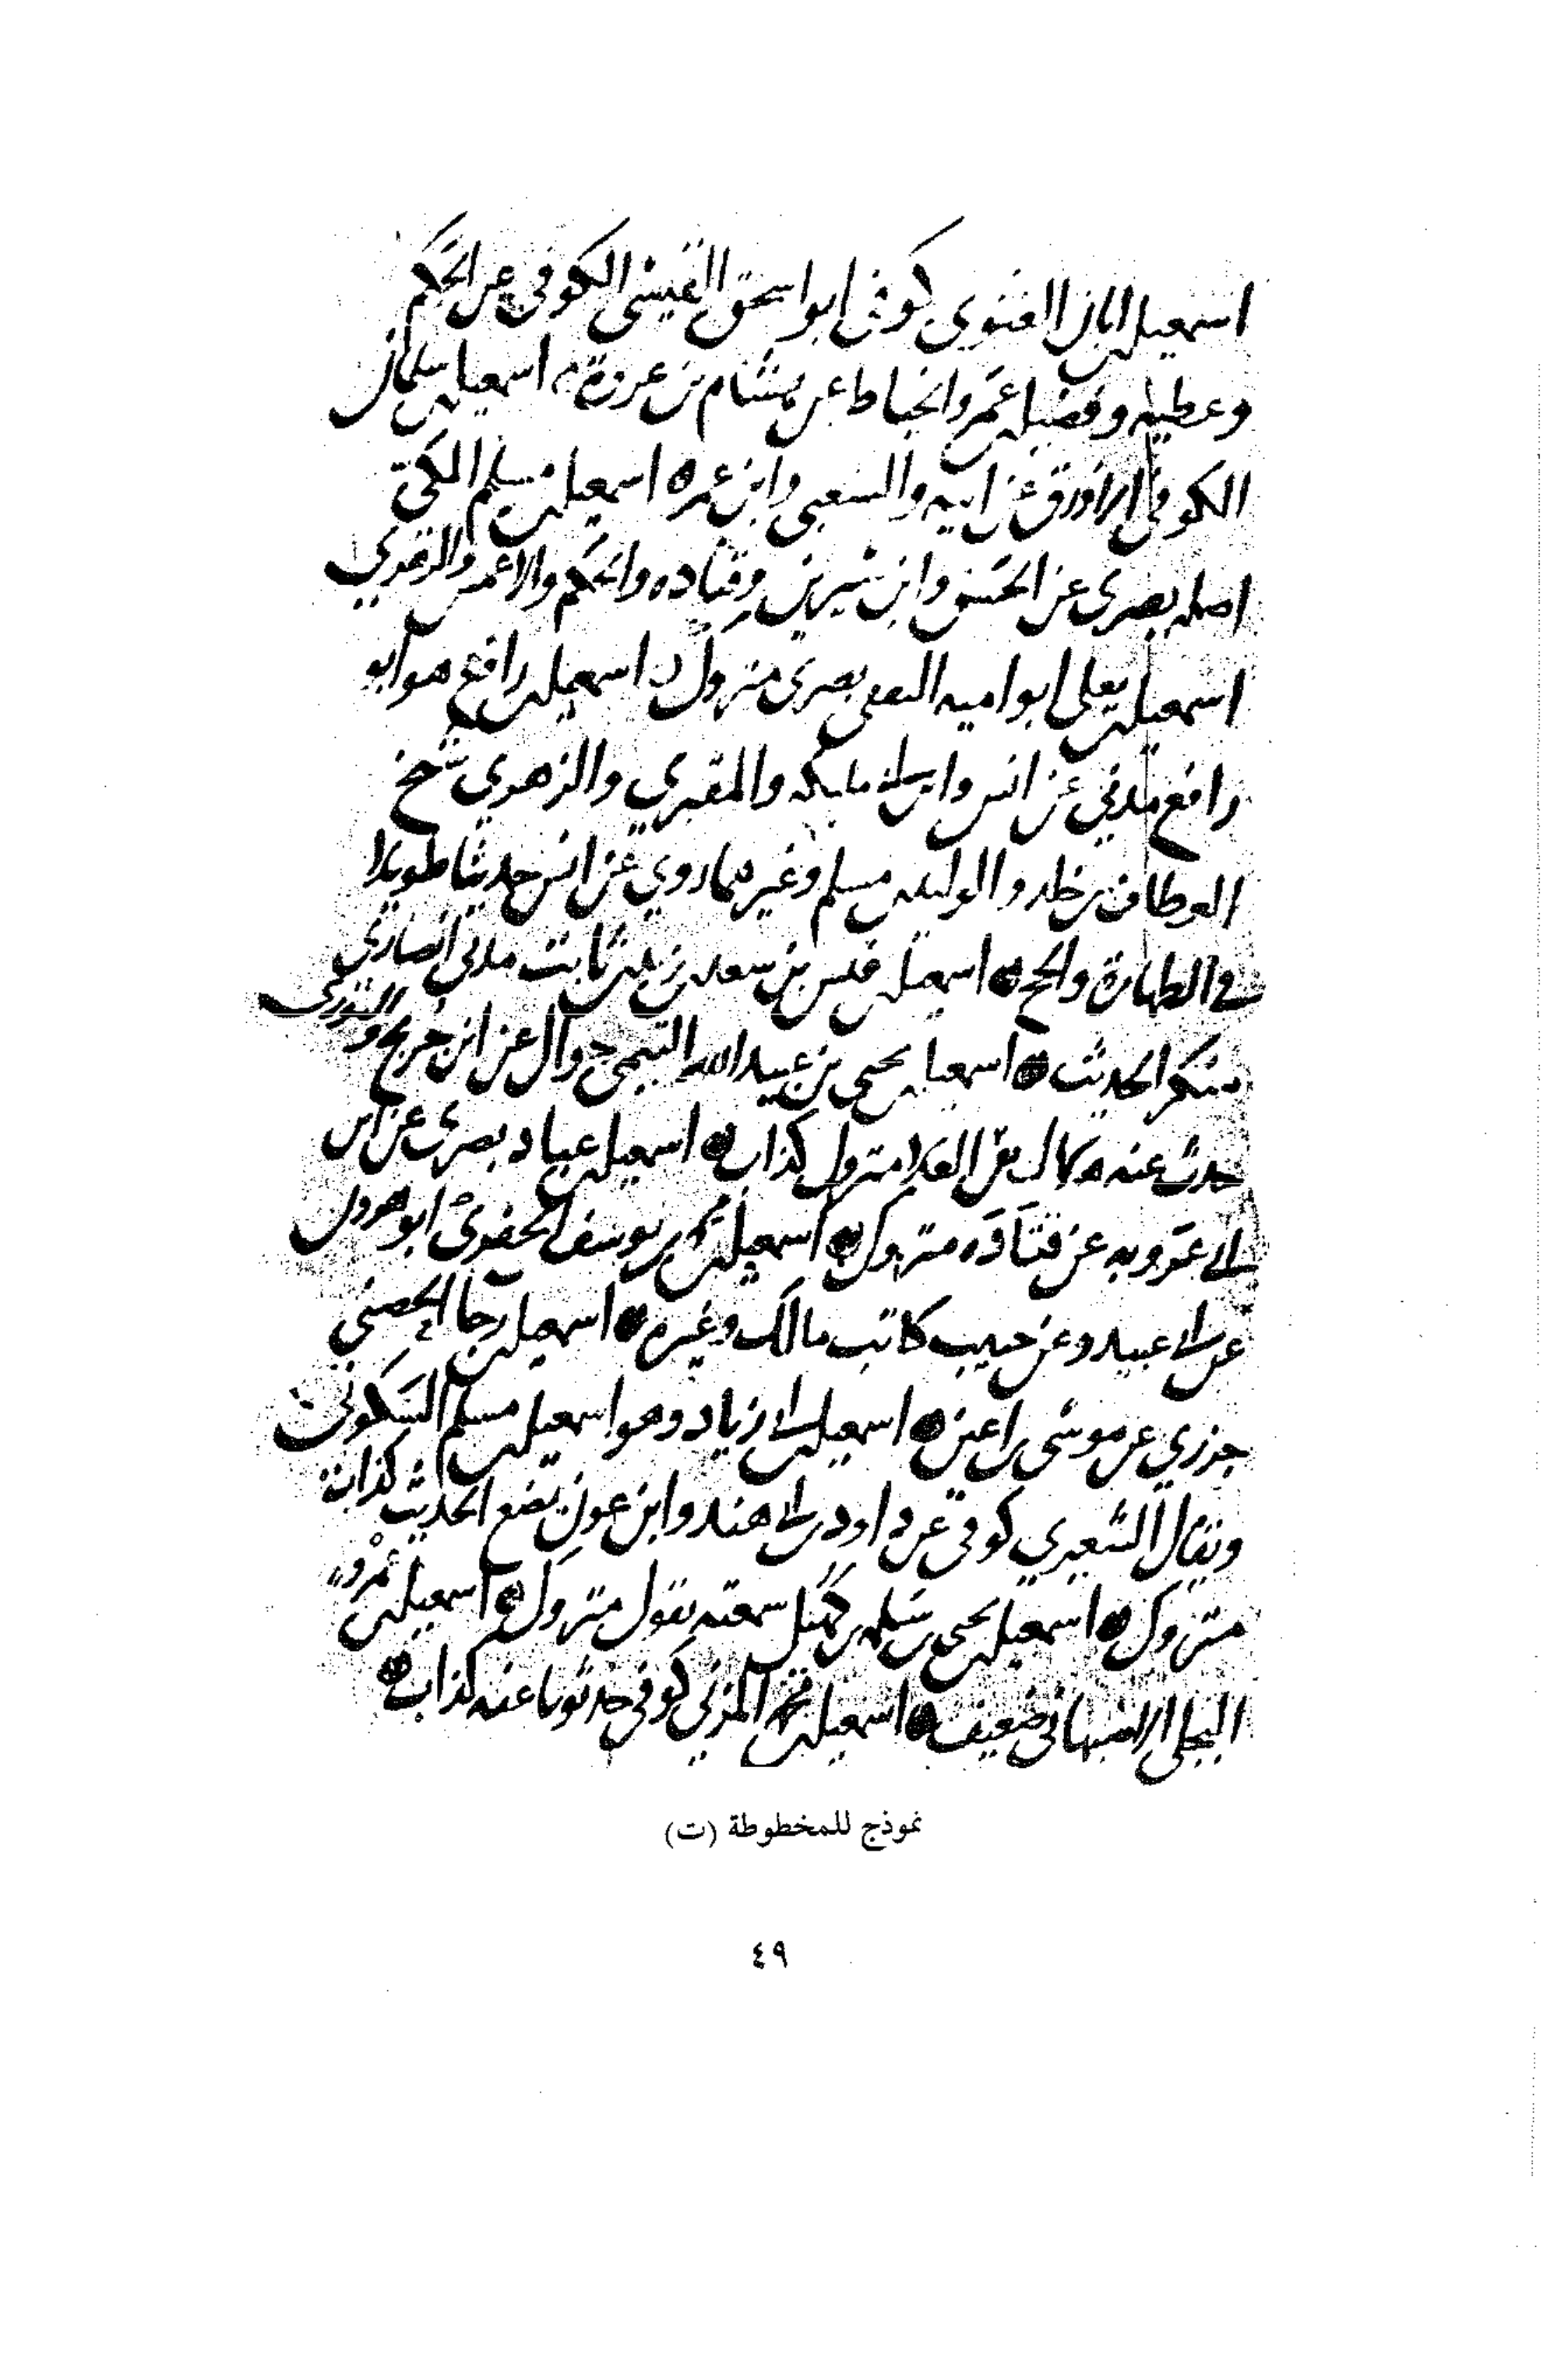 اسمعيل بن ابان الغنوى كوفى ابو اسحق القيسى الكوفى عن الحكم
وعطيه وفضيل بن عمرو الخياط عن هشام بن عروة اسمعيل بن سلمان
الكوفى الازرق عن ابيه والشعبى وابن عمر ه اسمعيل بن مسلم المكى
اصله بصرى عن الحسن وابن سيرين وقتاده والحكم والاعمش والزهري
اسمعيل بن يعلى ابو اميه الثقفى بصرى متروك اسمعيل بن رافع هو ابو
رافع مدني عن انس وابن ابى مليكه والمقبري والزهري شيخ
العطاف بن خالد والوليد بن مسلم وغيرهما روي عن انس حديثا طويلا
في الطهارة والحج ه اسمعيل بن قيس بن سعد بن زيد بن ثابت مدني انصاري
منكر الحديث ه اسمعيل بن يحيى بن عبيد الله التيمى عن ابن جريج والثورى
حدث عنه متروك كذاب ه اسمعيل بن عباد بصرى عن ابن
ابى عروبه عن قتاده متروك ه اسمعيل بن محمد بن يوسف ابو هرون
عن ابى عبيد وعن حبيب كاتب مالك وغيره ه اسمعيل بن رجا الحصني
جزري عن موسى بن اعين ه اسمعيل بن ابى زياد وهو اسمعيل بن مسلم السكوني
ويقال الشعيري كوفى عن داود بن ابى هند وابن عون يضع الحديث كذاب
متروك ه اسمعيل بن يحيى بن سلمه بن كهيل سمعته يقول متروك ه اسمعيل بن عمرو
البجلى الاصبهانى ضعيف ه اسمعيل بن محمد المزني كوفى حدثونا عنه كذاب ه
نموذج للمخطوطة (ت)
٤٩